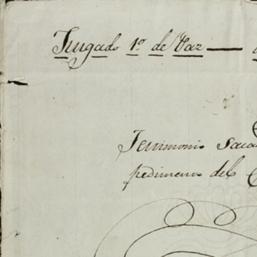 Juzgado 1º de Paz
Testimonio Saca
pedimento del